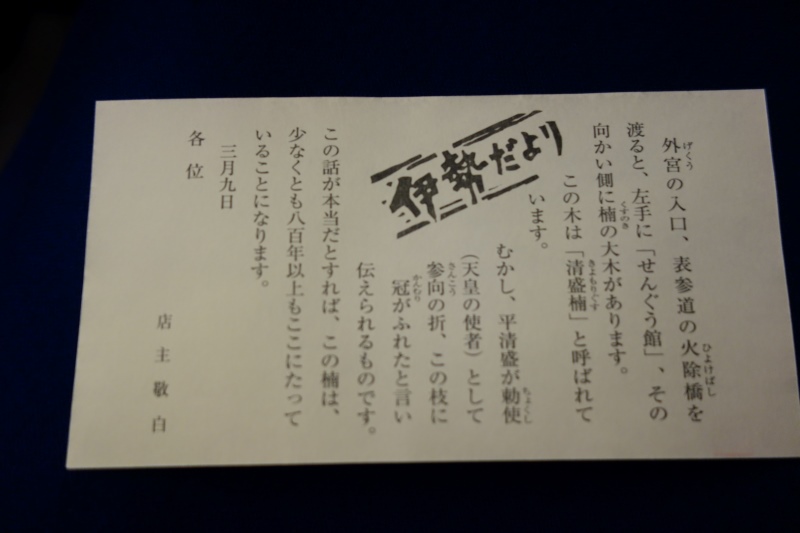 外宮の入口、表参道の火除橋を
渡ると、左手に「せんぐう館」、その
向かい側に楠の大木があります。
この木は「清盛楠」と呼ばれて
います。
伊勢だより
むかし、平清盛が勅使
（天皇の使者）として
参向の折、この枝に
冠がふれたと言い
伝えられるものです。
この話が本当だとすれば、この楠は、
少なくとも八百年以上もここにたって
いることになります。
三月九日
店主敬白
各位